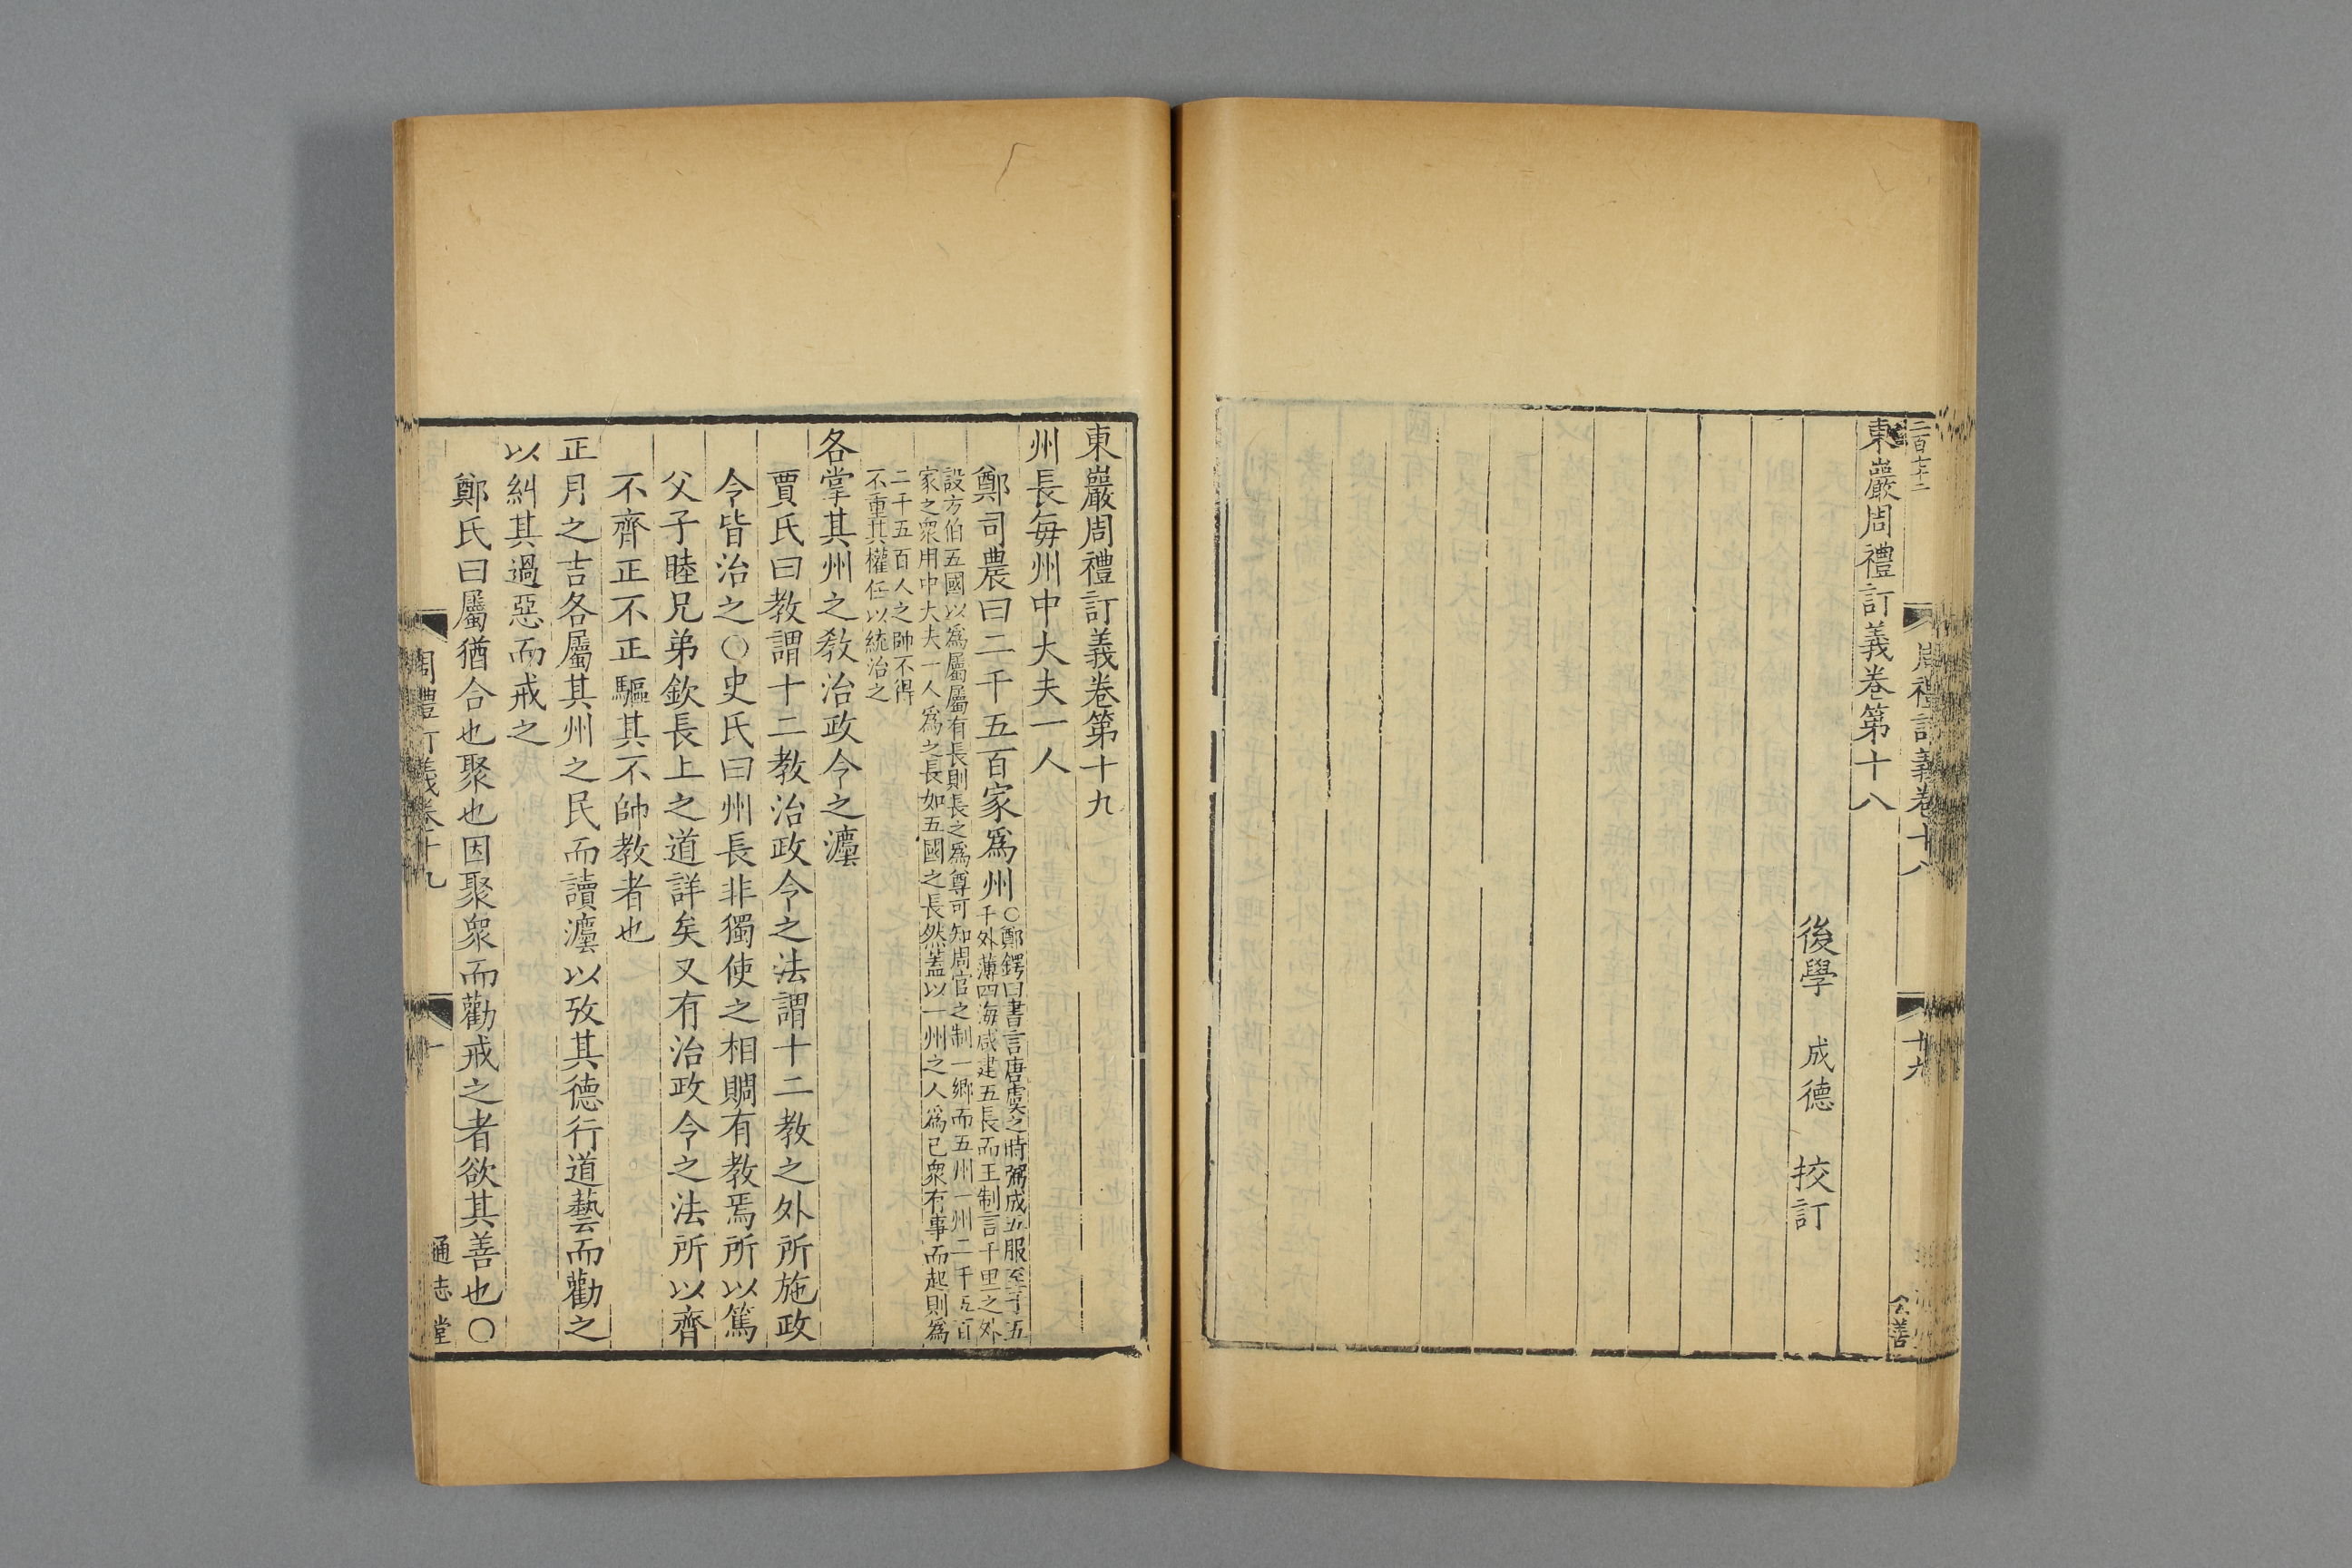 東巖周禮訂義卷第十八
後學 成德 挍訂
周禮訂義卷十八
十九
公善
東巖周禮訂義卷第十九
州長每州中大夫一人
鄭司農曰二千五百家爲州
○鄭鍔曰書言唐虞之時弼成五服至于五
千外薄四海咸建五長而王制言千里之外
設方伯五國以爲屬屬有長則長之爲尊可知周官之制一鄉而五州一州二千五百
家之衆用中大夫一人爲之長如五國之長然蓋以一州之人爲已衆有事而起則爲
二千五百人之帥不得
不重其權任以統治之
各掌其州之敎治政令之灋
賈氏曰教謂十二教治政令之法謂十二教之外所施政
令皆治之○史氏曰州長非獨使之相賙有教焉所以篤
父子睦兄弟欽長上之道詳矣又有治政令之法所以齊
不齊正不正驅其不帥教者也
正月之吉各屬其州之民而讀灋以攷其德行道藝而勸之
以糾其過惡而戒之
鄭氏曰屬猶合也聚也因聚衆而勸戒之者欲其善也○
周禮訂義卷十九
一
通志堂